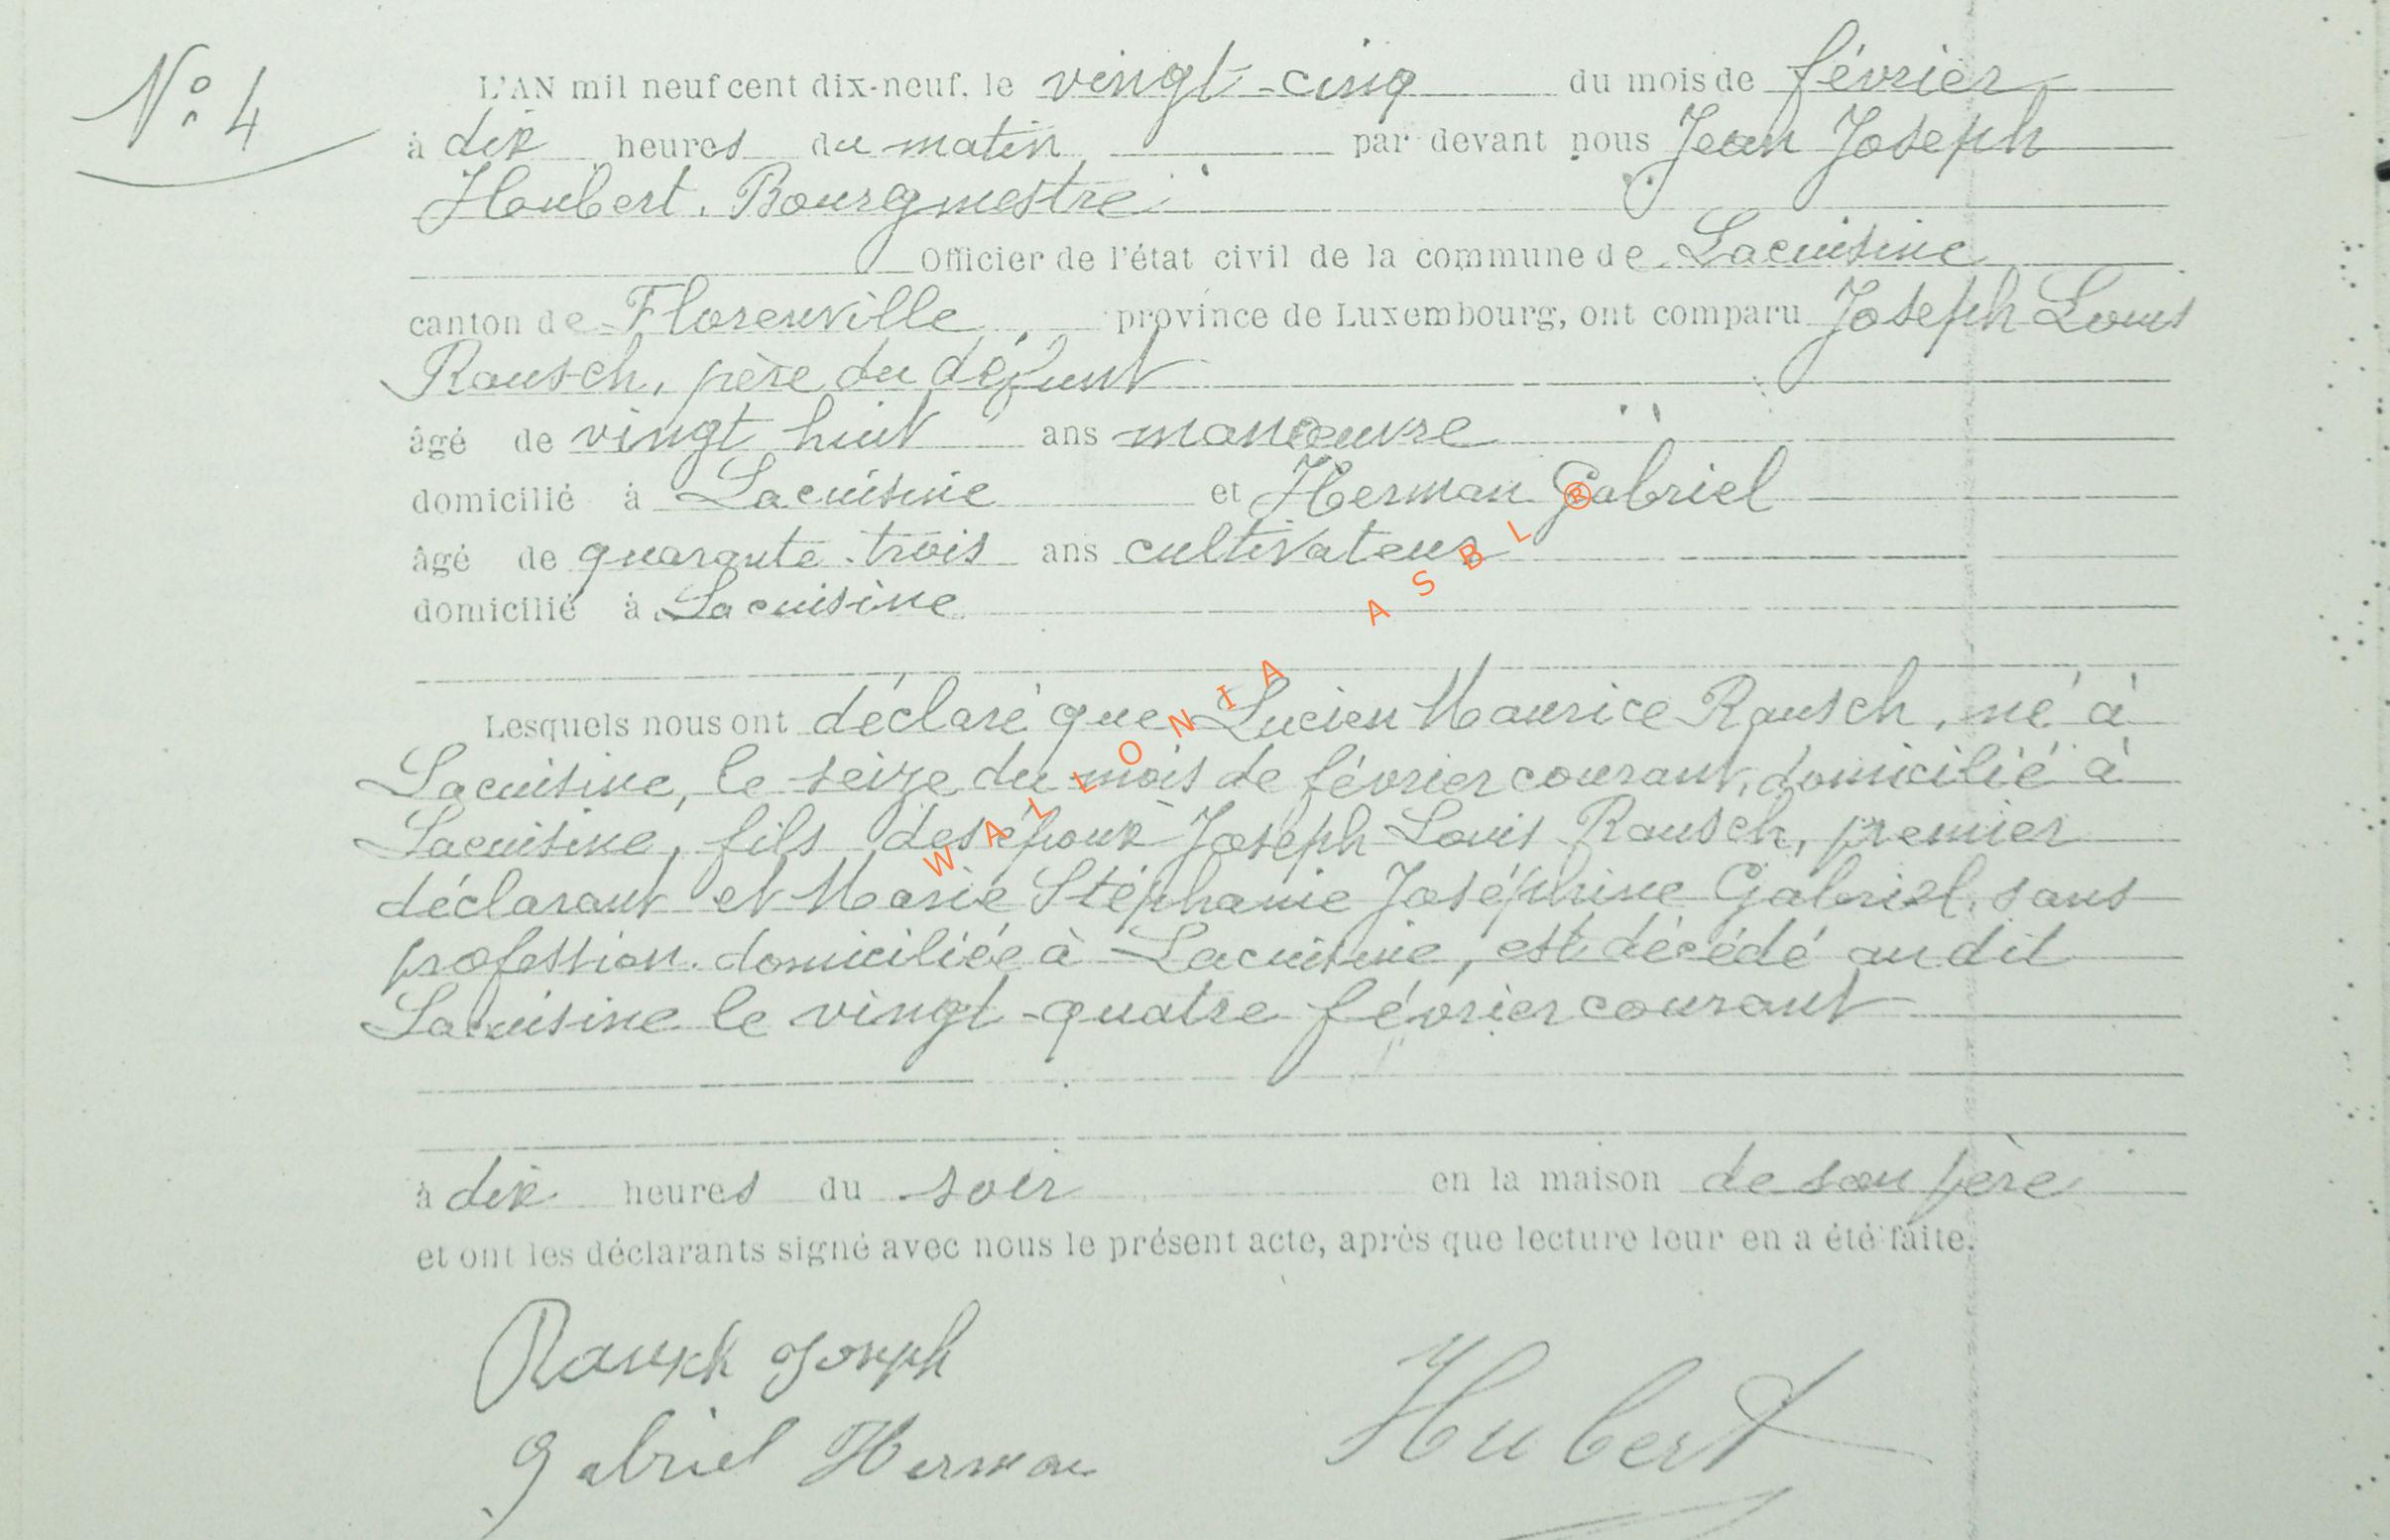 N° 4
L'AN mil neuf cent dix-neuf, le vingt-cinq du mois de février
à dix heures du matin, par devant nous Jean Joseph
Houbert, Bourgmestre
Officier de l'état civil de la commune de Lacuisine
canton de Florenville, province de Luxembourg, ont comparu Joseph Louis
Rausch, père du défunt
âgé de vingt huit ans manœuvre
domicilié à Lacuisine et Herman Gabriel
âgé de quarante-trois ans cultivateur
domicilié à Lacuisine
Lesquels nous ont déclaré que Lucien Maurice Rausch, né à
Lacuisine, le seize du mois de février courant, domicilié à
Lacuisine, fils des époux Joseph Louis Rausch, premier
déclarant et Marie Stéphanie Joséphine Gabriel, sans
profession, domiciliée à Lacuisine, est décédé au dit
Lacuisine le vingt-quatre février courant
à dix heures du soir en la maison de son père
et ont les déclarants signé avec nous le présent acte, après que lecture leur en a été faite.
Rausch Joseph
Hubert
Gabriel Herman
WALLONIA ASBL ®